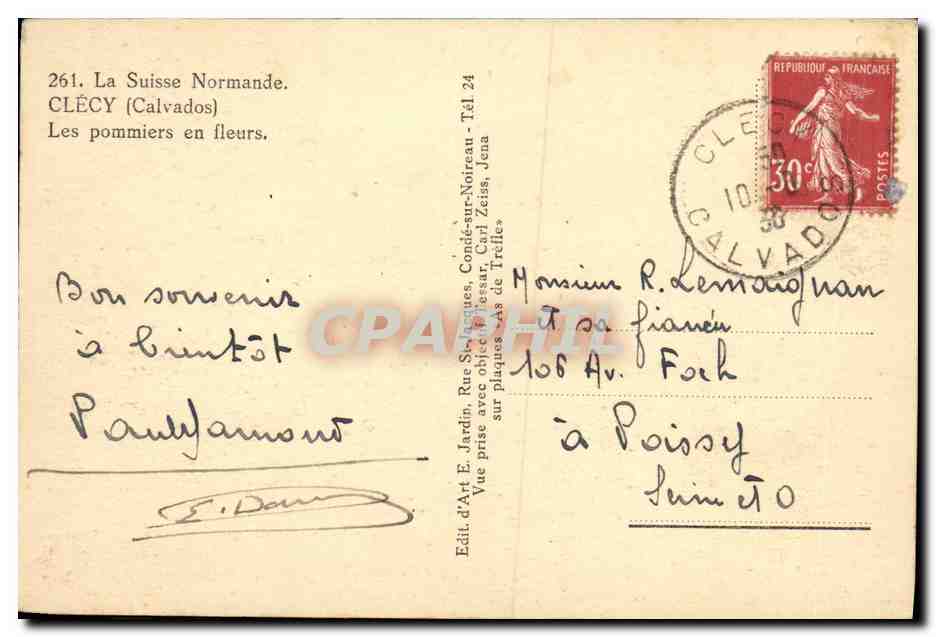 261. La Suisse Normande.
CLÉCY (Calvados)
Les pommiers en fleurs.
Bon souvenir
à bientôt
E. 
Edit. d'Art E. Jardin, Rue St-Jacques, Condé-sur-Noireau - Tél. 24
Vue prise avec objectif Tessar, Carl Zeiss, Jena
sur plaques «As de Trèfle»
REPUBLIQUE FRANÇAISE
30c
POSTES
CLECY
10
38
CALVADOS
Monsieur R. Lemaignan
et sa fiancée
106 Av. Foch
à Poissy
Seine et O
CPAPHIL